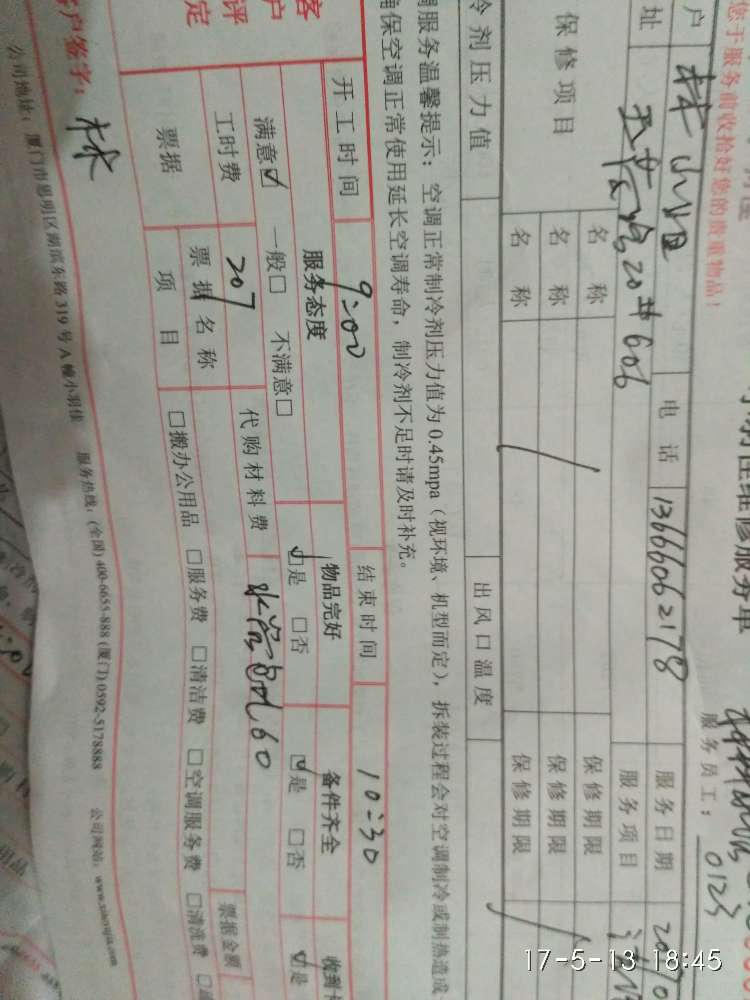 您于服务前收拾好您的贵重物品!
维修服务单
服务员工: 0123
户 林小姐 电话 13666062178 服务日期
址 20#606 服务项目
保修项目 名称 保修期限
名称 保修期限
名称 保修期限
冷剂压力值 出风口温度
调服务温馨提示: 空调正常制冷剂压力值为0.45mpa(视环境、机型而定), 拆装过程会对空调制冷或制热造成
保空调正常使用延长空调寿命, 制冷剂不足时请及时补充。
开工时间 9:00 结束时间 10:30
客户评定 服务态度 物品完好 备件齐全 收到
满意☑ 一般□ 不满意□ ☑是 □否 ☑是 □否 ☑是
工时费 207 代购材料费 60
票据 票据名称 票据金额
项目 □搬办公用品 □服务费 □清洁费 □空调服务费 □清洗费
客户签字: 林
公司地址: 厦门市思明区湖滨东路319号A幢小羽佳 服务热线: (全国) 400-6655-888 (厦门) 0592-5178888 公司网站: www.xiaoyujia.com
17-5-13 18:45